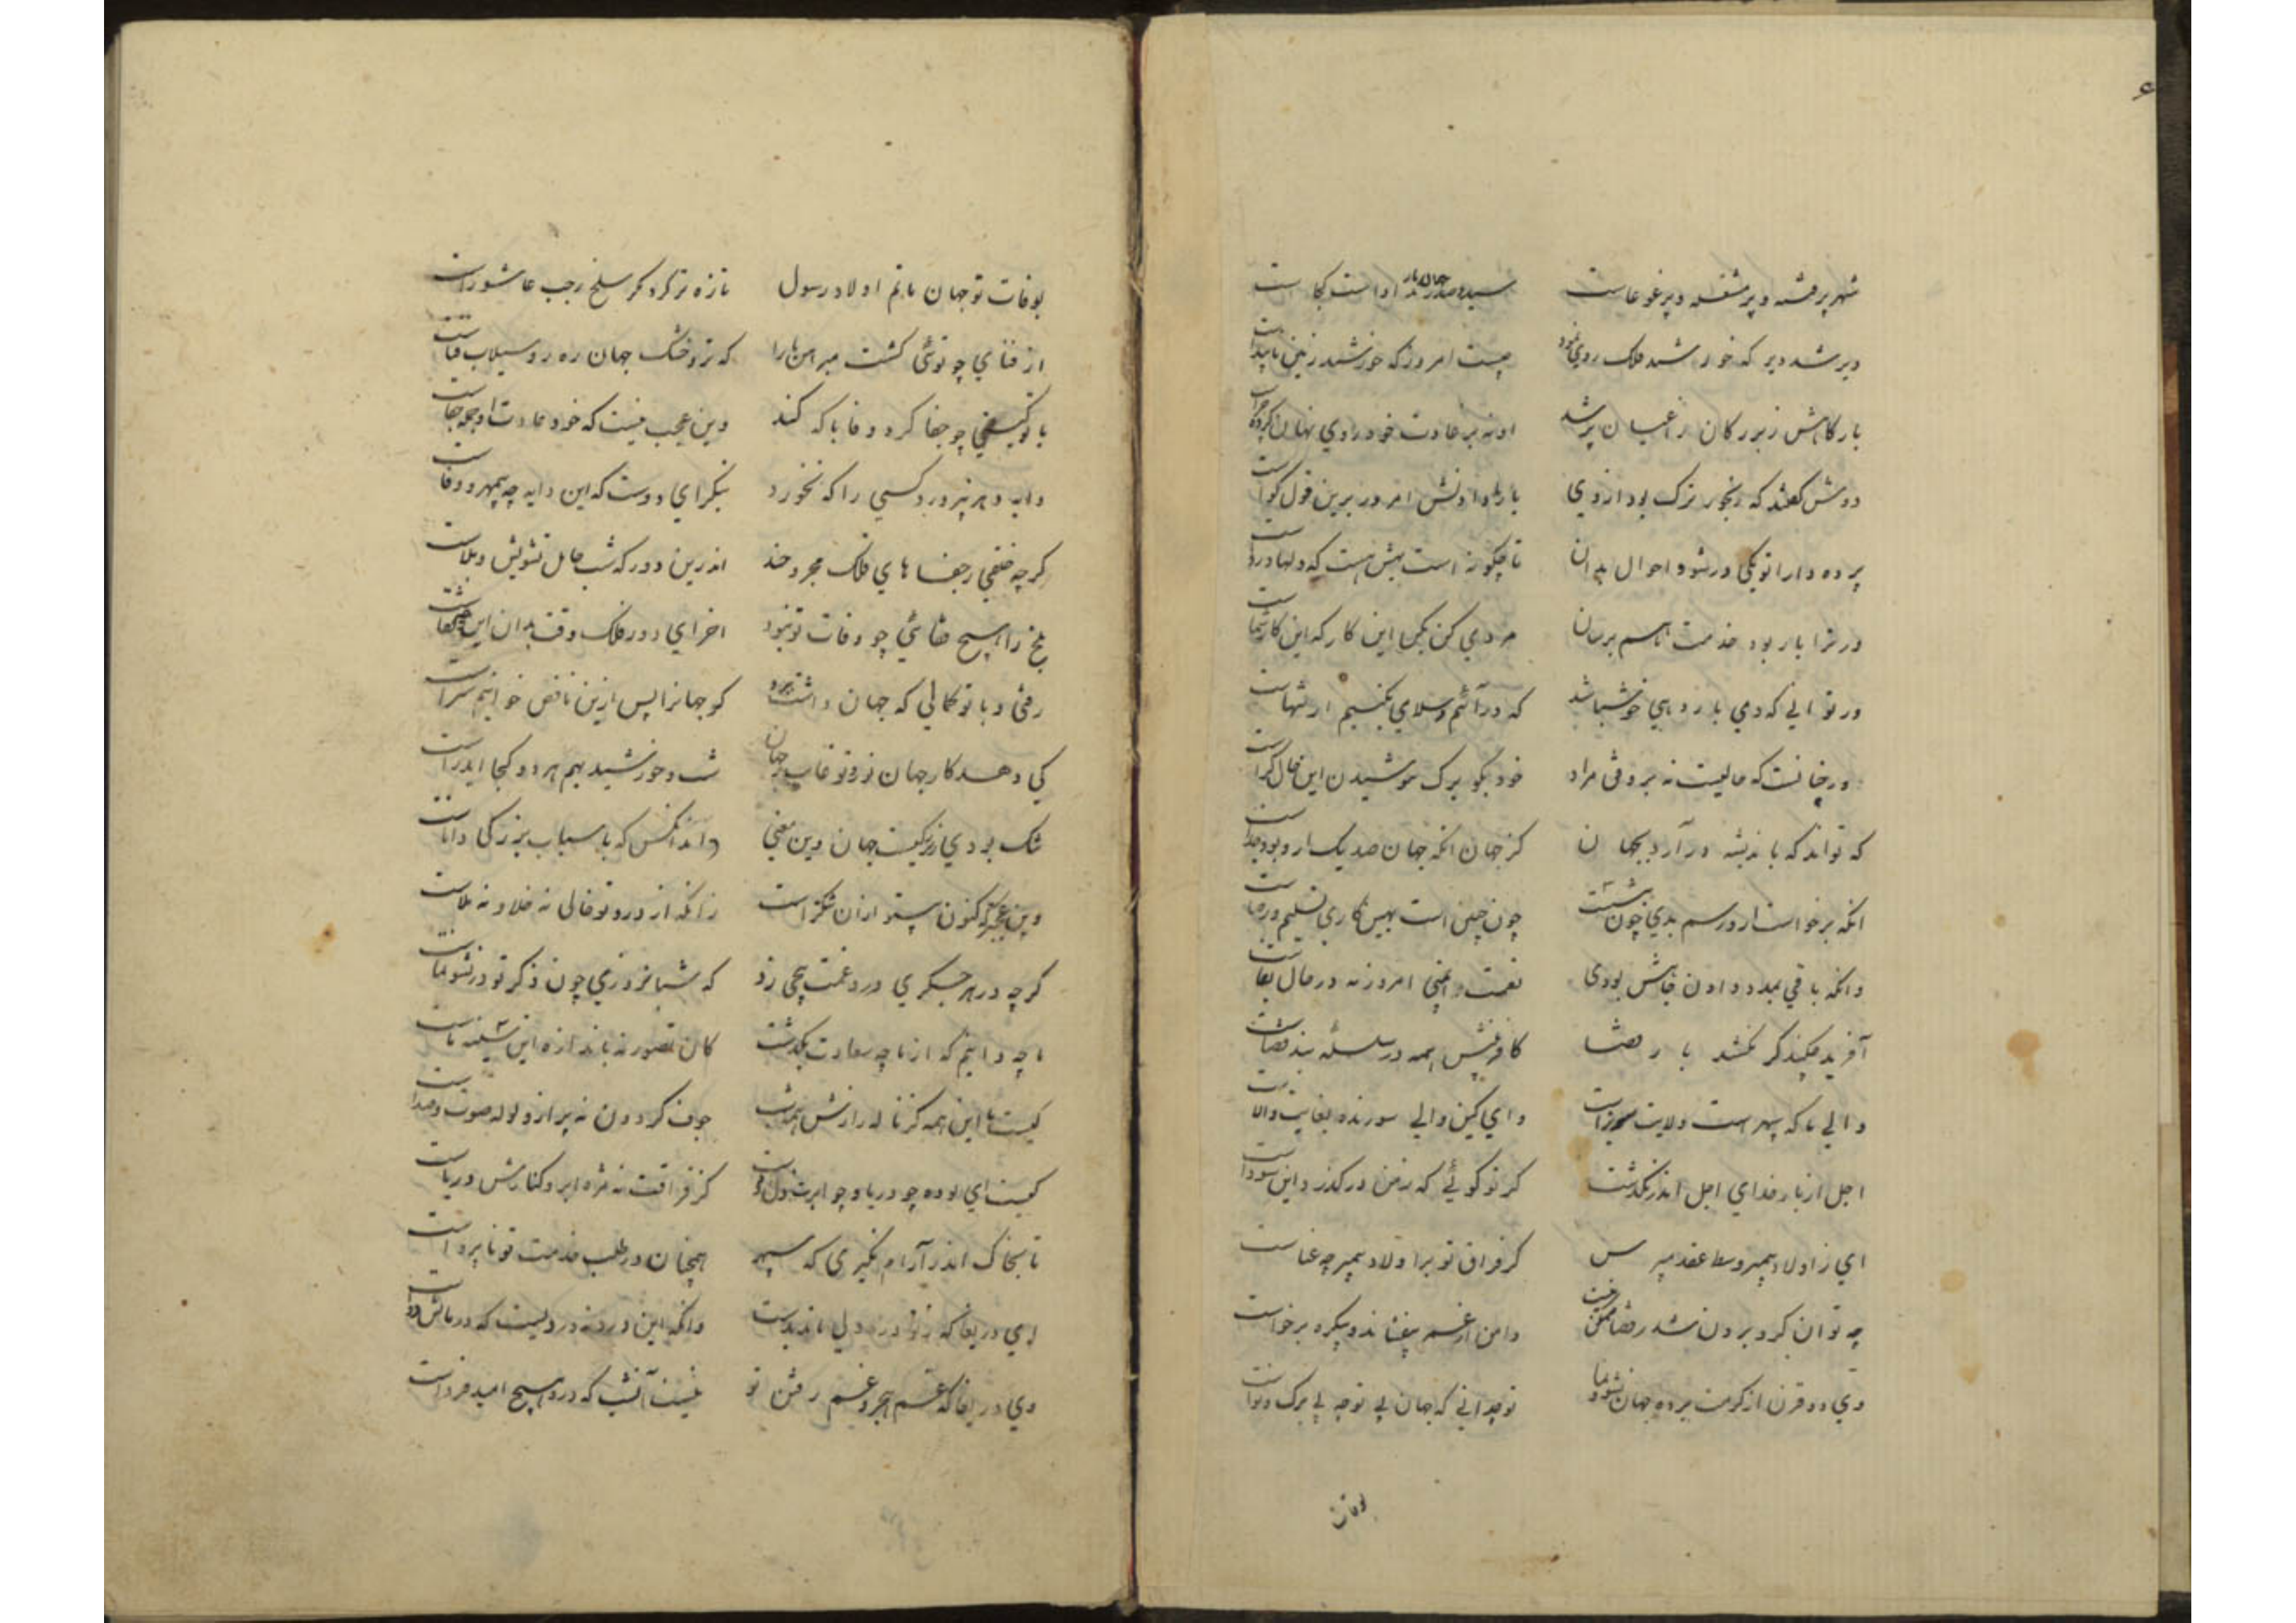 ء
شهر پر فتنه و پر مشغله و پر غوغاست سید و صدر جهان بار ندادست کجاست
دیر شد دیر که خورشید فلک روی نمود چیست امروز که خورشید زمین ناپیداست
بارکاهش ز بزرکان و اعیان پر شد او نه بر عادت خود روی نهان کرد چراست
دوش کفتند که رنجور ترک بود ازوی بار نادادنش امروز برین قول کواست
پرده دارا تو یکی درشو و احوال بدان تا چکونه است بهش هست که دلها درواست
ور ترا بار بود خدمت ما هم برسان مردمی کن بکن این کار که این کار شماست
ور توانی که دمی بار دهی خوش باشد که درآئیم و سلامی بکنیم ار تنهاست
ور چنانست که حالیست نه بر وفق مراد خود بکو برک نیوشیدن این حال کراست
که تواند که باندیشه درآرد بجهان کز جهان انکه جهان صد یک ازو بود جداست
انکه برخاست ازو رسم بدی چون بنشست چون چنین است بهین کاری تسلیم و رضاست
وانکه باقی بمدد دادن جاهش بودی نعمت و ایمنی امروز نه در حال بقاست
آفرینش چکند کر نکشد بار قضا کافرینش همه در سلسله بند قضاست
والی ما که سپهر است ولایت سوزاست وای کین والی سوزنده بغایت والاست
اجل از بار خدای اجل اندر نکذشت کر تو کوئی که ز من درکذرد این سوداست
ای ز اولاد پیمبر وسط عقد مپرس کز فراق تو بر اولاد پیمبر چه عناست
چه توان کرد برون شد ز قضا ممکن نیست دامن از غم بیفشاند و بیکره برخاست
وی دو قرن از کرمت برده جهان نشو و نما تو چه دانی که جهان بی تو چه بی برک و نواست
بوفات
بوفات تو جهان ماتم اولاد رسول تازه تر کرد مکر سلخ رجب عاشوراست
از فنای چو توئی کشت مبرهن ما را که تر و خشک جهان ره رو سیلاب فناست
با تو کیتی چو جفا کرد وفا با که کند وین عجب نیست که خود عادت او جمله جفاست
دایه دهر نپرورد کسی را که نخورد بنکر ای دوست که این دایه چه بی مهر و وفاست
کرچه خلقی ز جفاهای فلک مجروحند اندرین دور که شب حامل تشویش و بلاست
بلخ را هیچ قفائی چو وفات تو نبود اخر ای دور فلک وقت بدان این چه قفاست
رفتی و با تو کمالی که جهان داشت ببرد کو جهان را پس ازین ناقص خوانیم سزاست
کی دهد کار جهان نور و تو غائب ز جهان شب و خورشید بهم هر دو کجا آید راست
تنک بودی ز بزرکیت جهان وین معنی داند انکس که باسباب بزرکی داناست
وین عجبتر که کنون بی تو ازان تنکتراست زانکه از درد تو خالی نه خلا و نه ملاست
کرچه در هر جکری درد غمت بیخی زد که شبانروزی چون ذکر تو در نشو و نماست
ما چه دانیم که از ما چه سعادت بکذشت کان تصور نه باندازه این سینه ماست
کیست با این همه کز ناله زارش همه شب جوف کردون نه پر از ولوله صوت و صداست
کیست ای بوده چو دریا و چو ابرت دل و کف کز فراقت نه مژه ابر و کنارش دریاست
تا بخاک اندر آرام نکیری که سپهر همچنان در طلب خدمت تو ناپرواست
ای دریغا که ز تو درد دلی ماند بدست وانکه این درد نه دردیست که درمانش دواست
وی دریغا که غم هجر و غم رفتن تو نیست آن شب که درو هیچ امید فرداست